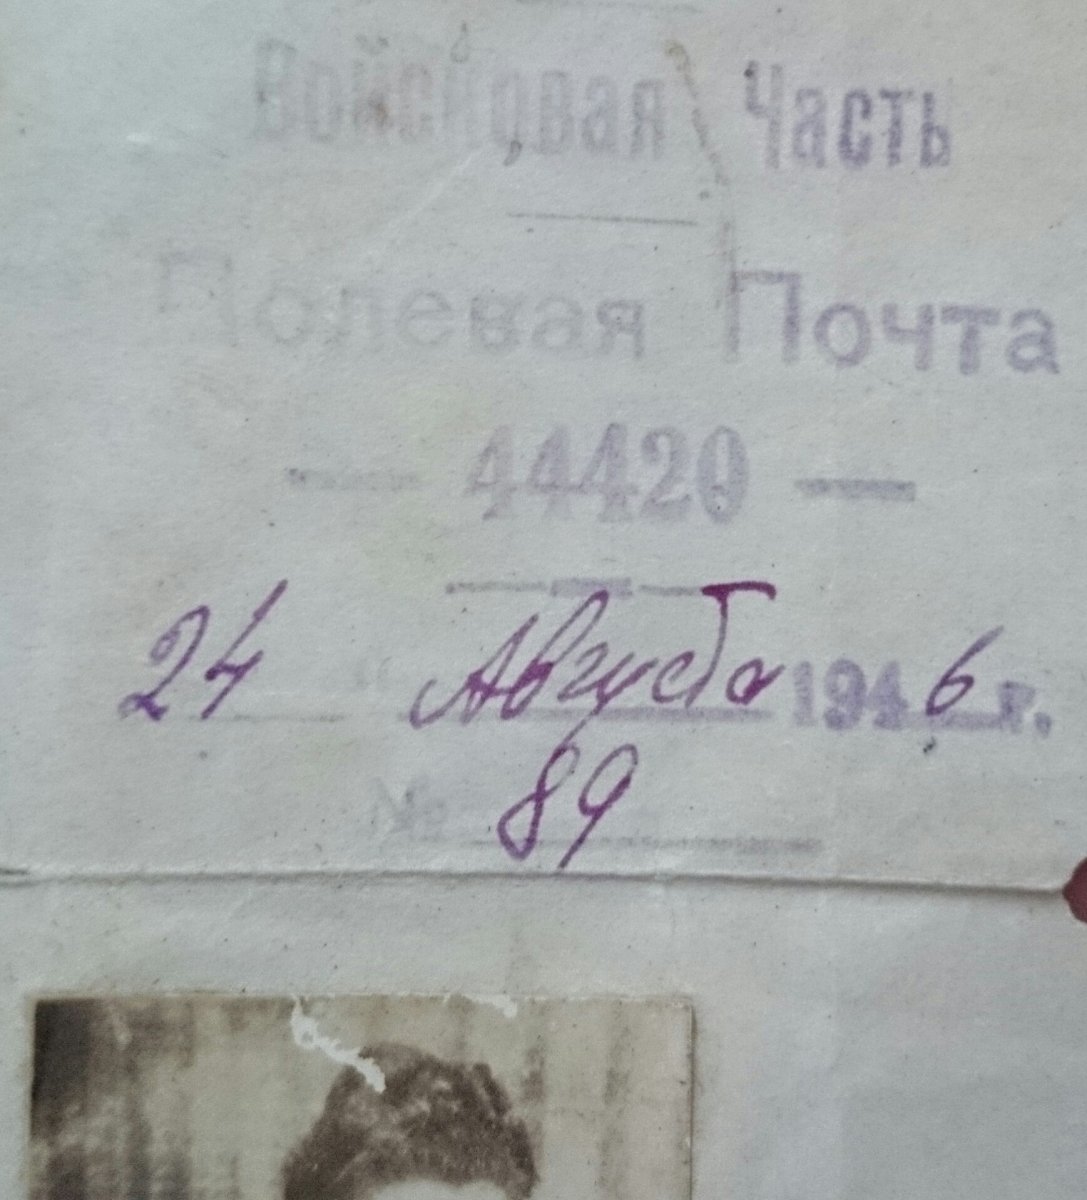 Войсковая Часть
Полевая Почта
— 44420 —
24 Августа 1946 г.
№ 89